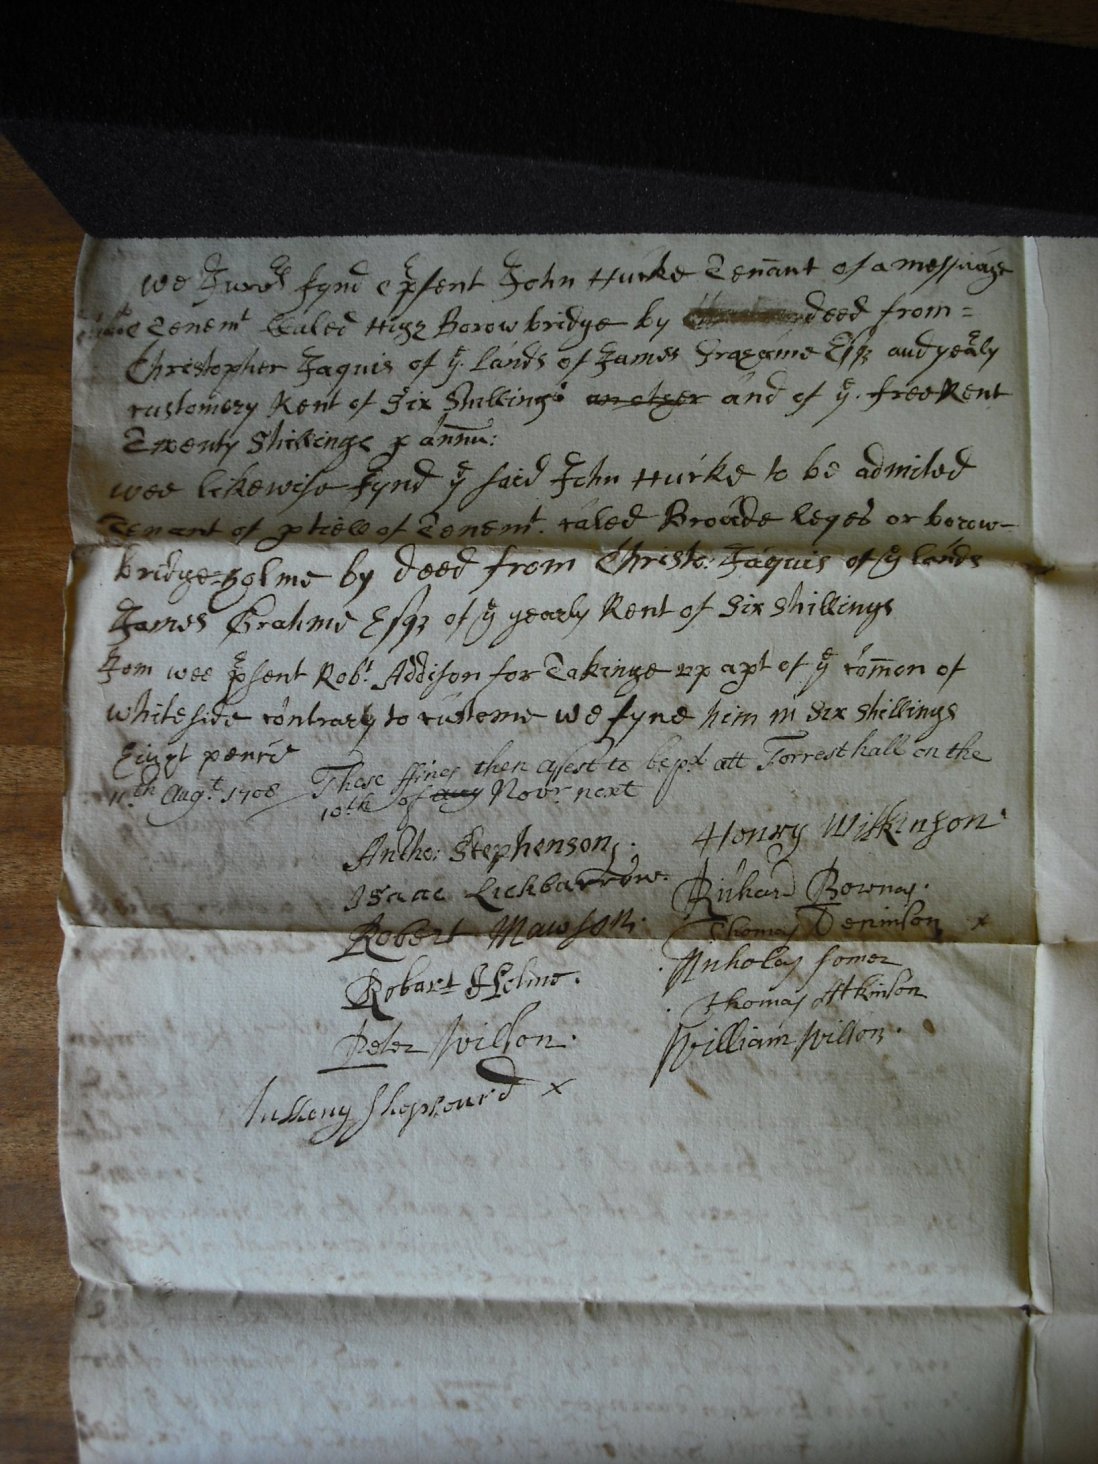 we Jurors fynd & psent John Hurke Tenant of a messuage
& Tenemt Caled High Borowbridge by deed from =
Christopher Jaquis of ye Lands of James Grahame Esqr and yearly
customery Rent of Six Shillings an other and of ye free Rent
Twenty Shillings p annu:
wee likewise fynd ye said John Hurke to be admited
Tenant of ptiell of Tenemt caled Broade leyes or borow-
bridge-holme by deed from Christo: Jaquis of ye lands
James Grahme Esqr of ye yearly Rent of Six Shillings
Itom wee psent Robt Addison for Takinge up apt of ye comon of
whiteside contrary to custome we fyne him in Six Shillings
Eight pence
11th Augt 1708 These ffines then assest to be pd att Forrest hall on the
10th of aug Novr next
Antho: Stephenson. Henry Wilkinson
Isaac Lickbarrow. Richard Bownas.
Robert Mawson. Thomas Deninson x
Robart Helme. Nicholas Somer
Peter Willson. Thomas Atkinson
William Willson.
Anthony Shepheard x